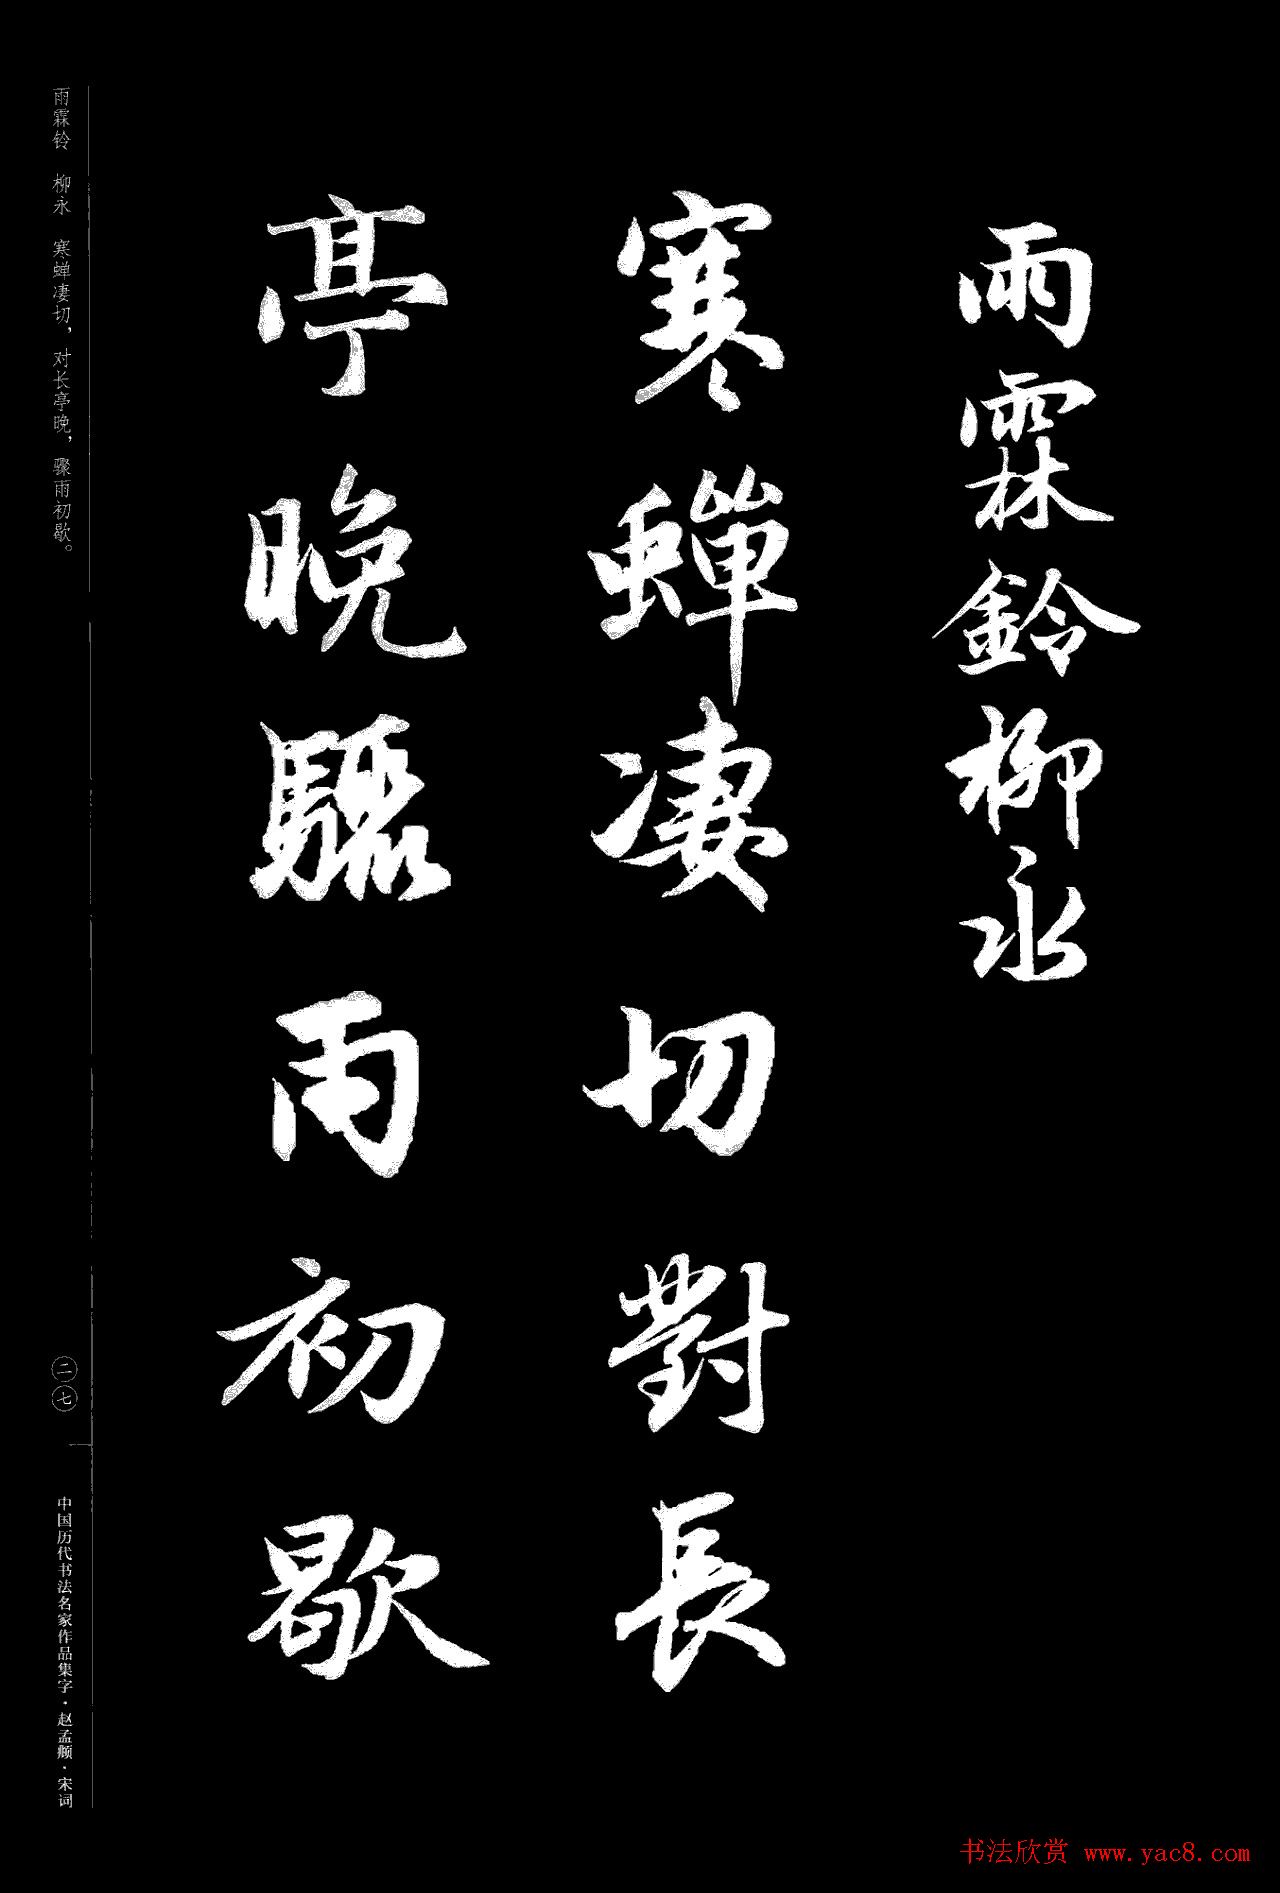 雨霖鈴柳永
寒蟬凄切對長
亭晚驟雨初歇
雨霖铃 柳永 寒蝉凄切，对长亭晚，骤雨初歇。
二七
中国历代书法名家作品集字·赵孟頫·宋词
书法欣赏 www.yac8.com